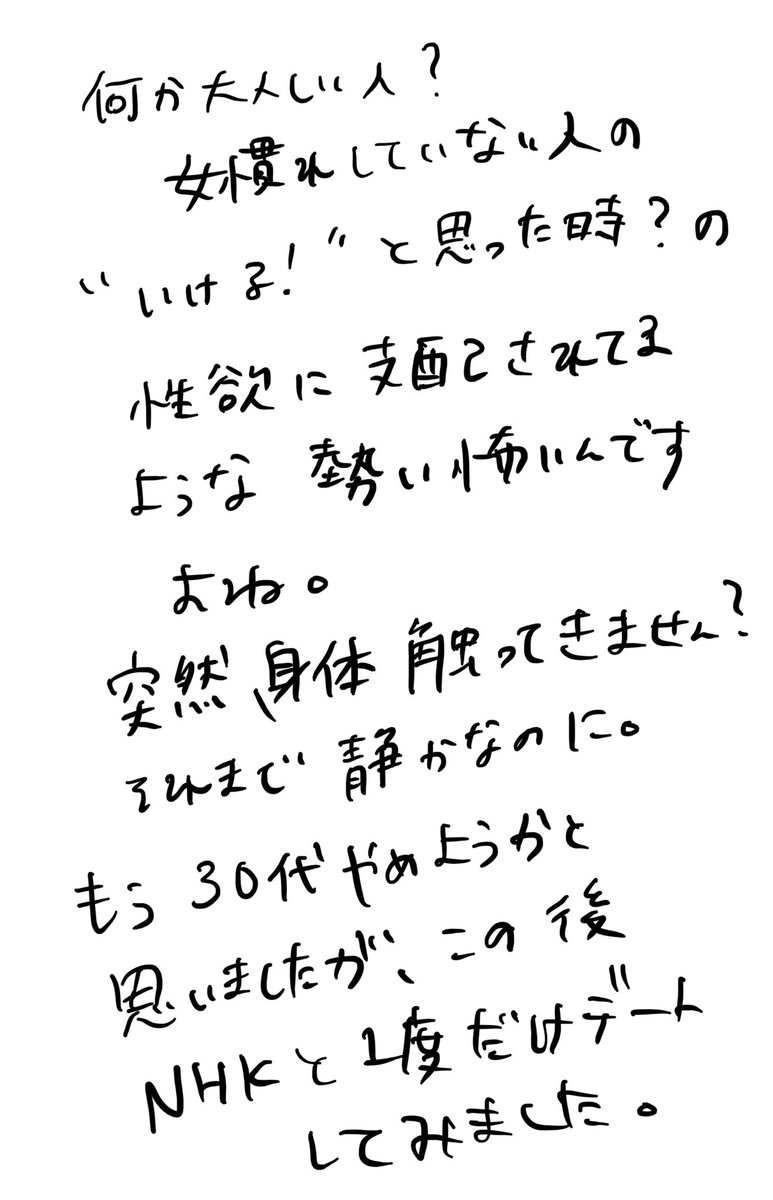 何か大人しい人?
女慣れしていない人の
“いける!”と思った時?の
性欲に支配されてる
ような 勢い怖いんです
よね。
突然、身体触ってきません?
それまで静かなのに。
もう30代やめようかと
思いましたが、この後
NHKと1度だけデート
してみました。